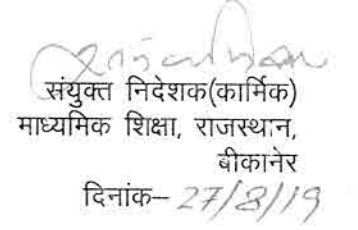 संयुक्त निदेशक(कार्मिक)
माध्यमिक शिक्षा, राजस्थान,
बीकानेर
दिनांक– 27/8/19